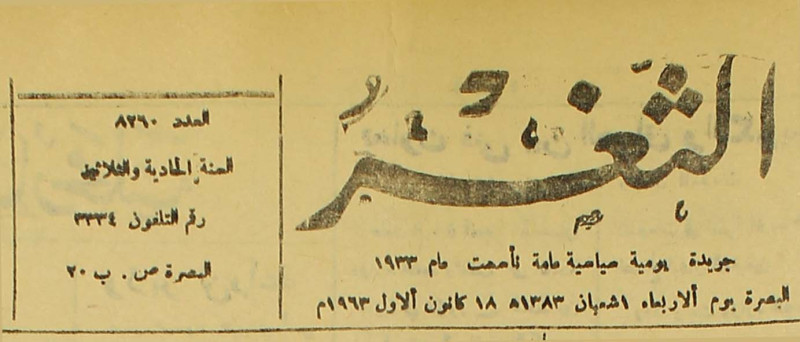 الثغر
جريدة يومية سياسية عامة تأسست عام ١٩٣٣
البصرة يوم الاربعاء ١ شعبان ١٣٨٣ه ١٨ كانون الاول ١٩٦٣م
العدد ٨٢٦٠
السنة الحادية والثلاثين
رقم التلفون ٣٣٣٤
البصرة ص . ب ٢٠